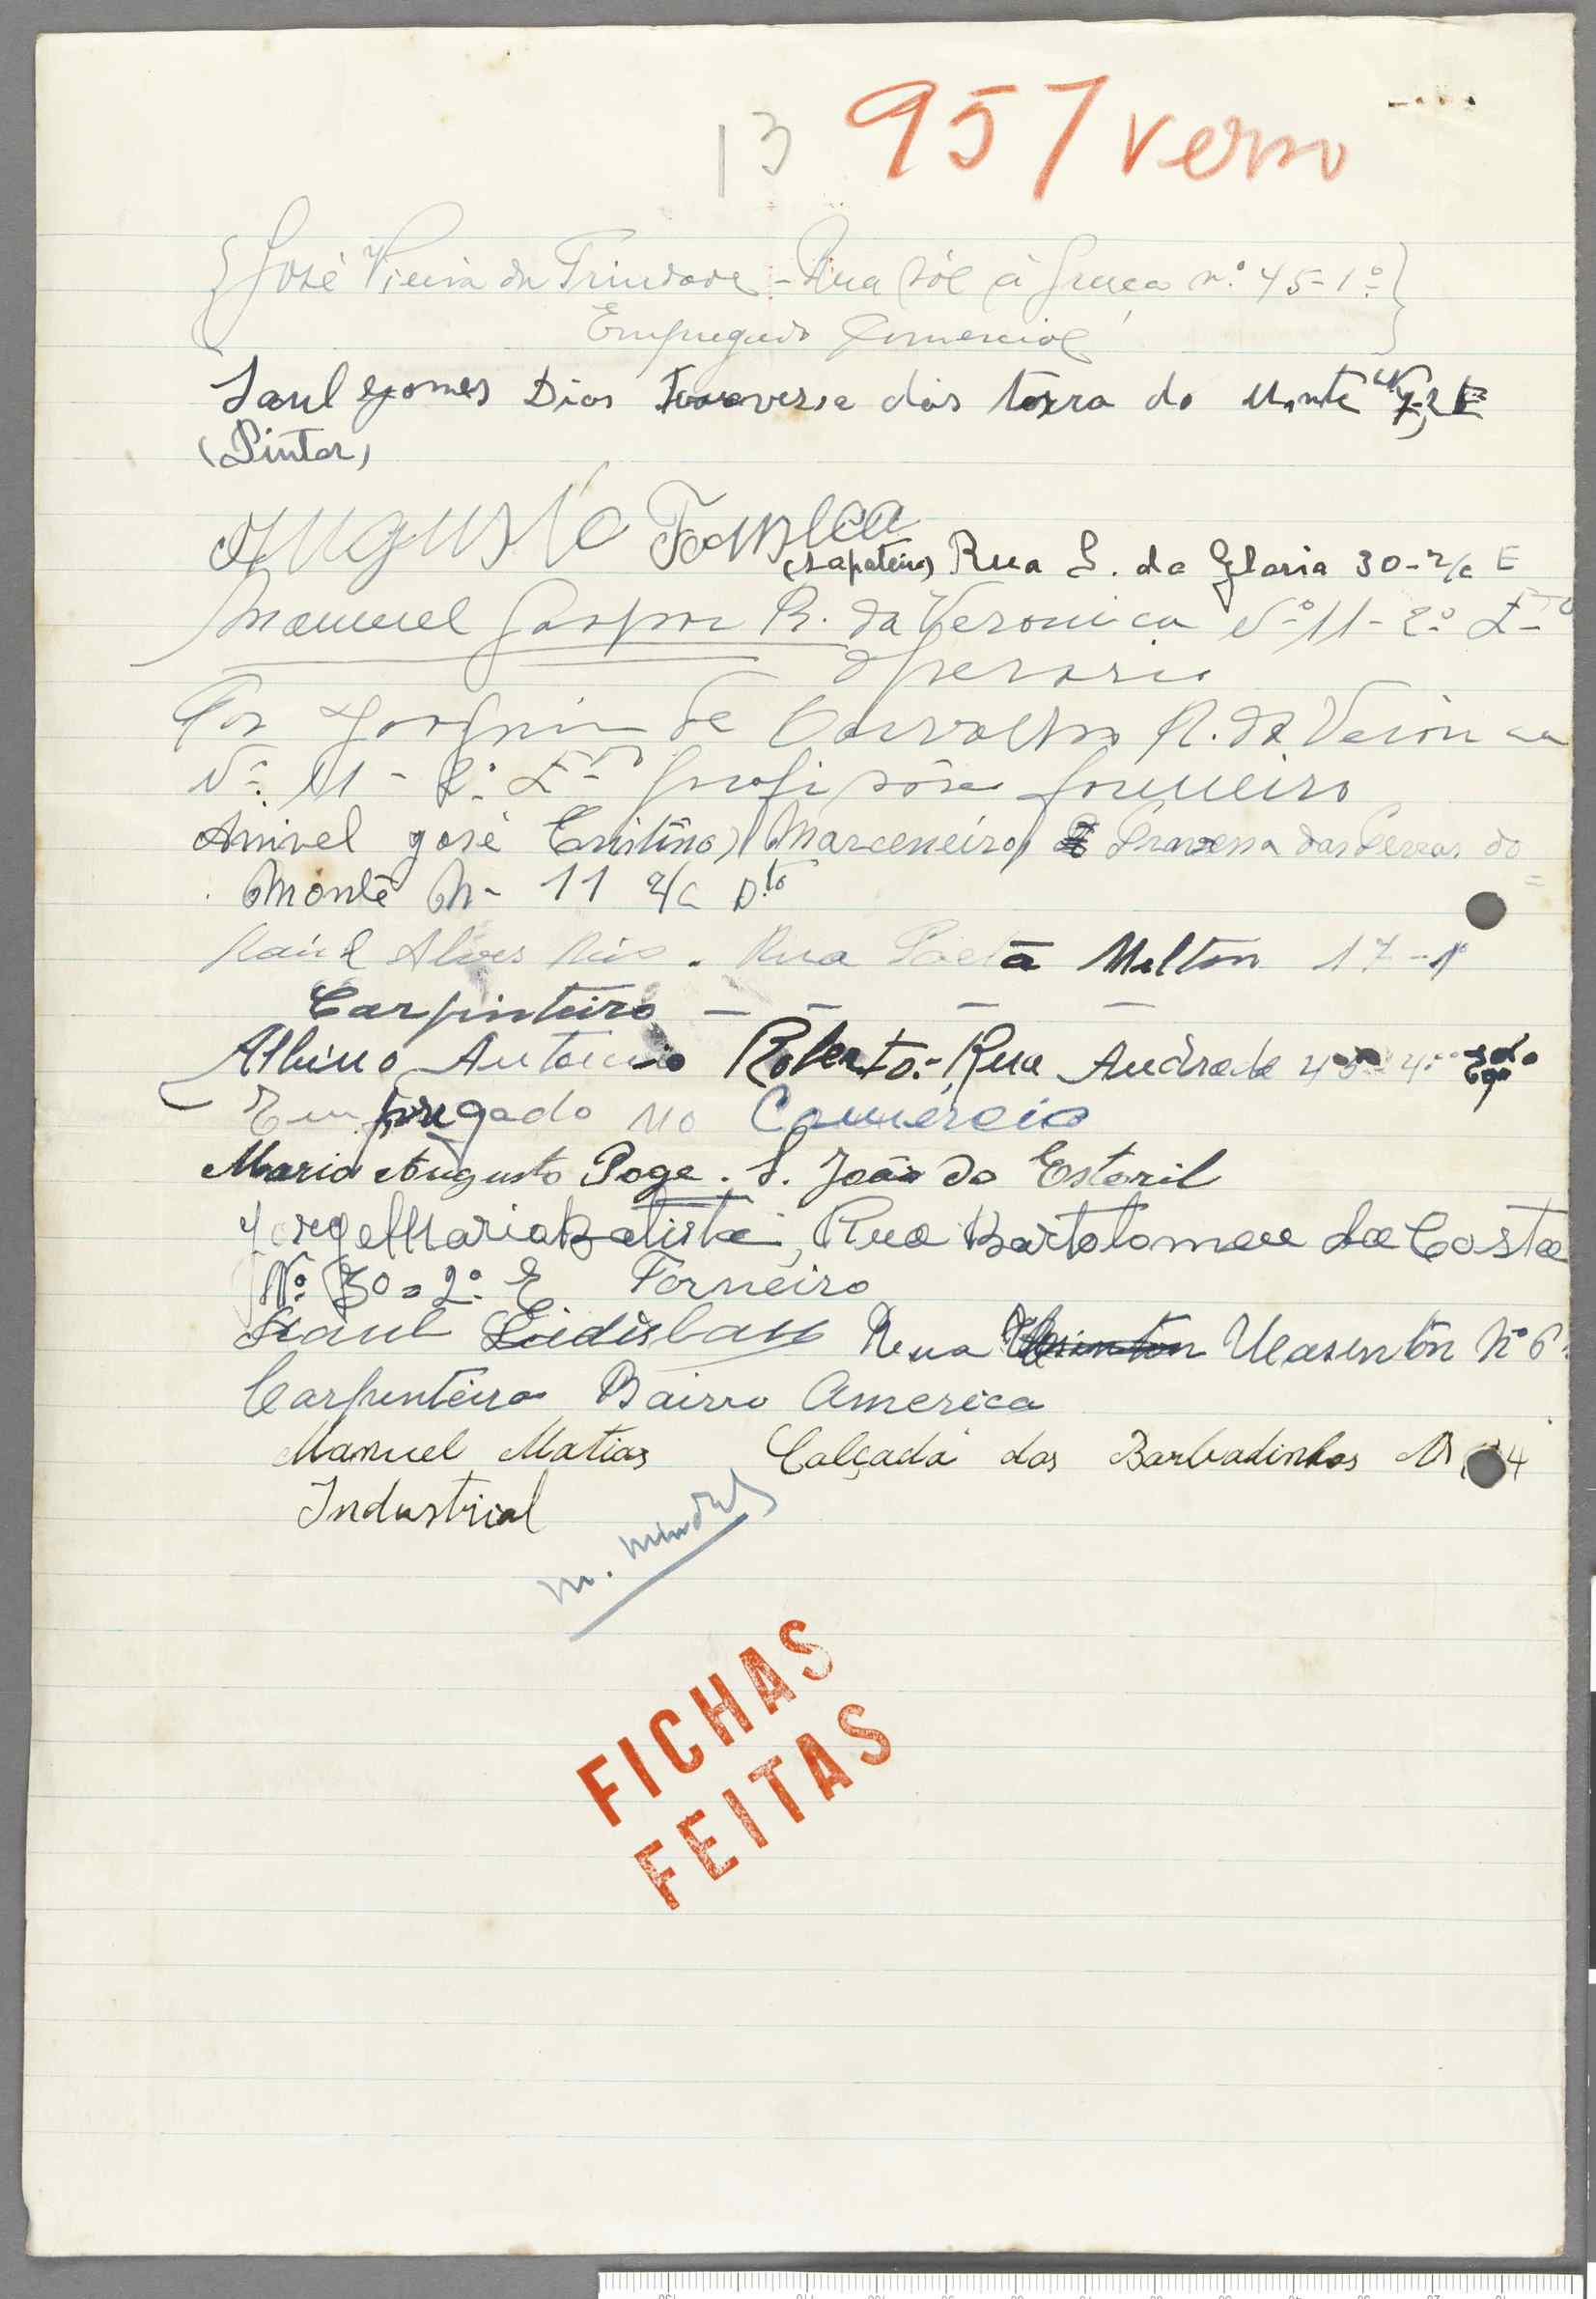 13 957 verso
José Vieira da Trindade - Rua Sól á Graça n.º 45-1º
Empregado Comercial
Saul Gomes Dias Traversa das terra do Monte 7, 2 E
(Pintor)
Augusto Fonseca
(Sapateiro) Rua S. da Gloria 30-r/c E
Manuel Gaspar R. da Veronica Nº 11-2º E-
Operario
Joaquim de Carvalho R. da Veronica
Nº 11 - 2º E- profissão forneiro
Anivel josé Cristino) Marceneiro) Travessa das Terras do
Monte N- 11 r/c Dto
Raúl Alves Rua Poeta Milton 17-1º
Carpinteiro - - - -
Albino Antonio Roberto.- Rua Andrade 4º
Empregado no Comércio
Mario Augusto Poge. S. João do Estoril
Jorge Maria Batista, Rua Bartolomeu da Costa
Nº 30=2º E Torneiro
Raul Ladislau Rua Uasinton Nº 6
Carpinteiro Bairro America
Manuel Matias Calçada dos Barbadinhos N 4
Industrial
FICHAS
FEITAS